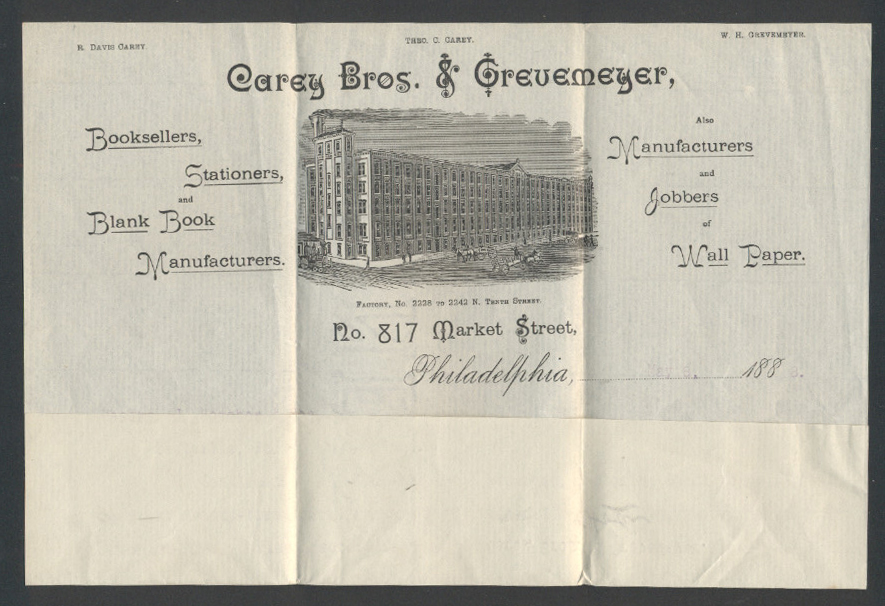 R. Davis Carey.
Theo. C. Carey.
W. H. Grevemeyer.
Carey Bros. & Grevemeyer,
Booksellers,
Stationers,
and
Blank Book
Manufacturers.
Also
Manufacturers
and
Jobbers
of
Wall Paper.
Factory, No. 2228 to 2242 N. Tenth Street.
No. 817 Market Street,
Philadelphia, 188